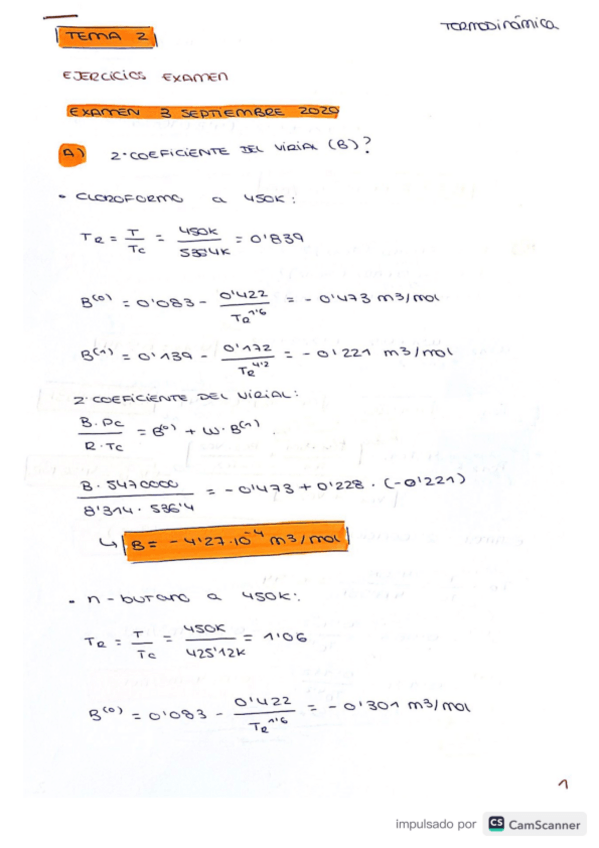 TERMODINÁMICA
TEMA 2
EJERCICIOS EXAMEN
EXAMEN 3 SEPTIEMBRE 2020
A) 2º COEFICIENTE DEL VIRIAL (B)?
• CLOROFORMO a 450K:
TR = T/Tc = 450K/536'4K = 0'839
B(0) = 0'083 - 0'422/TR^1'6 = - 0'473 m3/mol
B(1) = 0'139 - 0'172/TR^4'2 = - 0'221 m3/mol
2º COEFICIENTE DEL VIRIAL:
B·Pc/R·Tc = B(0) + W·B(1)
B·5470000/8'314·536'4 = - 0'473 + 0'228 · (-0'221)
↳ B = - 4'27·10^-4 m3/mol
• n-butano a 450K:
TR = T/Tc = 450K/425'12K = 1'06
B(0) = 0'083 - 0'422/TR^1'6 = - 0'301 m3/mol
1
impulsado por CS CamScanner